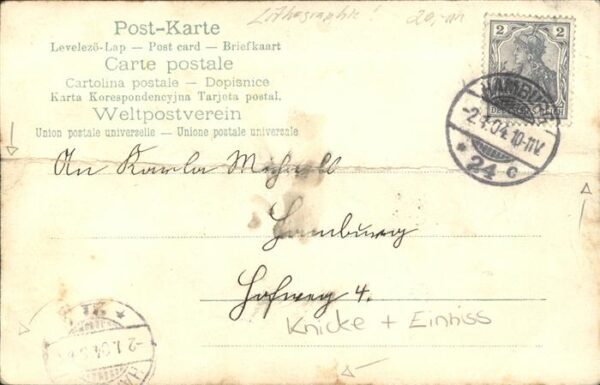 Lithographie! 20,-
Post-Karte
Levelező-Lap — Post card — Briefkaart
Carte postale
Cartolina postale — Dopisnice
Karta Korespondencyjna Tarjeta postal.
Weltpostverein
Union postale universelle — Unione postale universale
2 2
HAMBURG
-2.1.04.10-11V.
* 24 c
An Karla Michaell
Hamburg
Hofweg 4.
Knicke + Einriss
-2.1.04